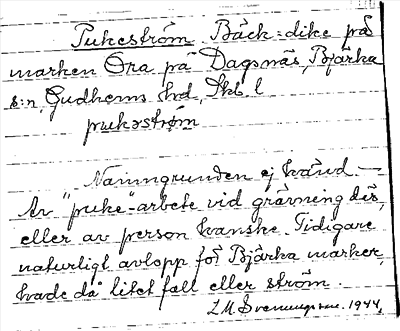 Pukeström Bäck-dike på
marken Ora på Dagsnäs, Bjärka
s:n, Gudhems hd, Skb. l
pukəström
Namngrunden ej känd —
Av "puke"-arbete vid grävning
eller av person kanske. Tidigare
naturligt avlopp för Bjärka marker,
hade då litet fall eller ström.
L.M. Svenungsson. 1944.